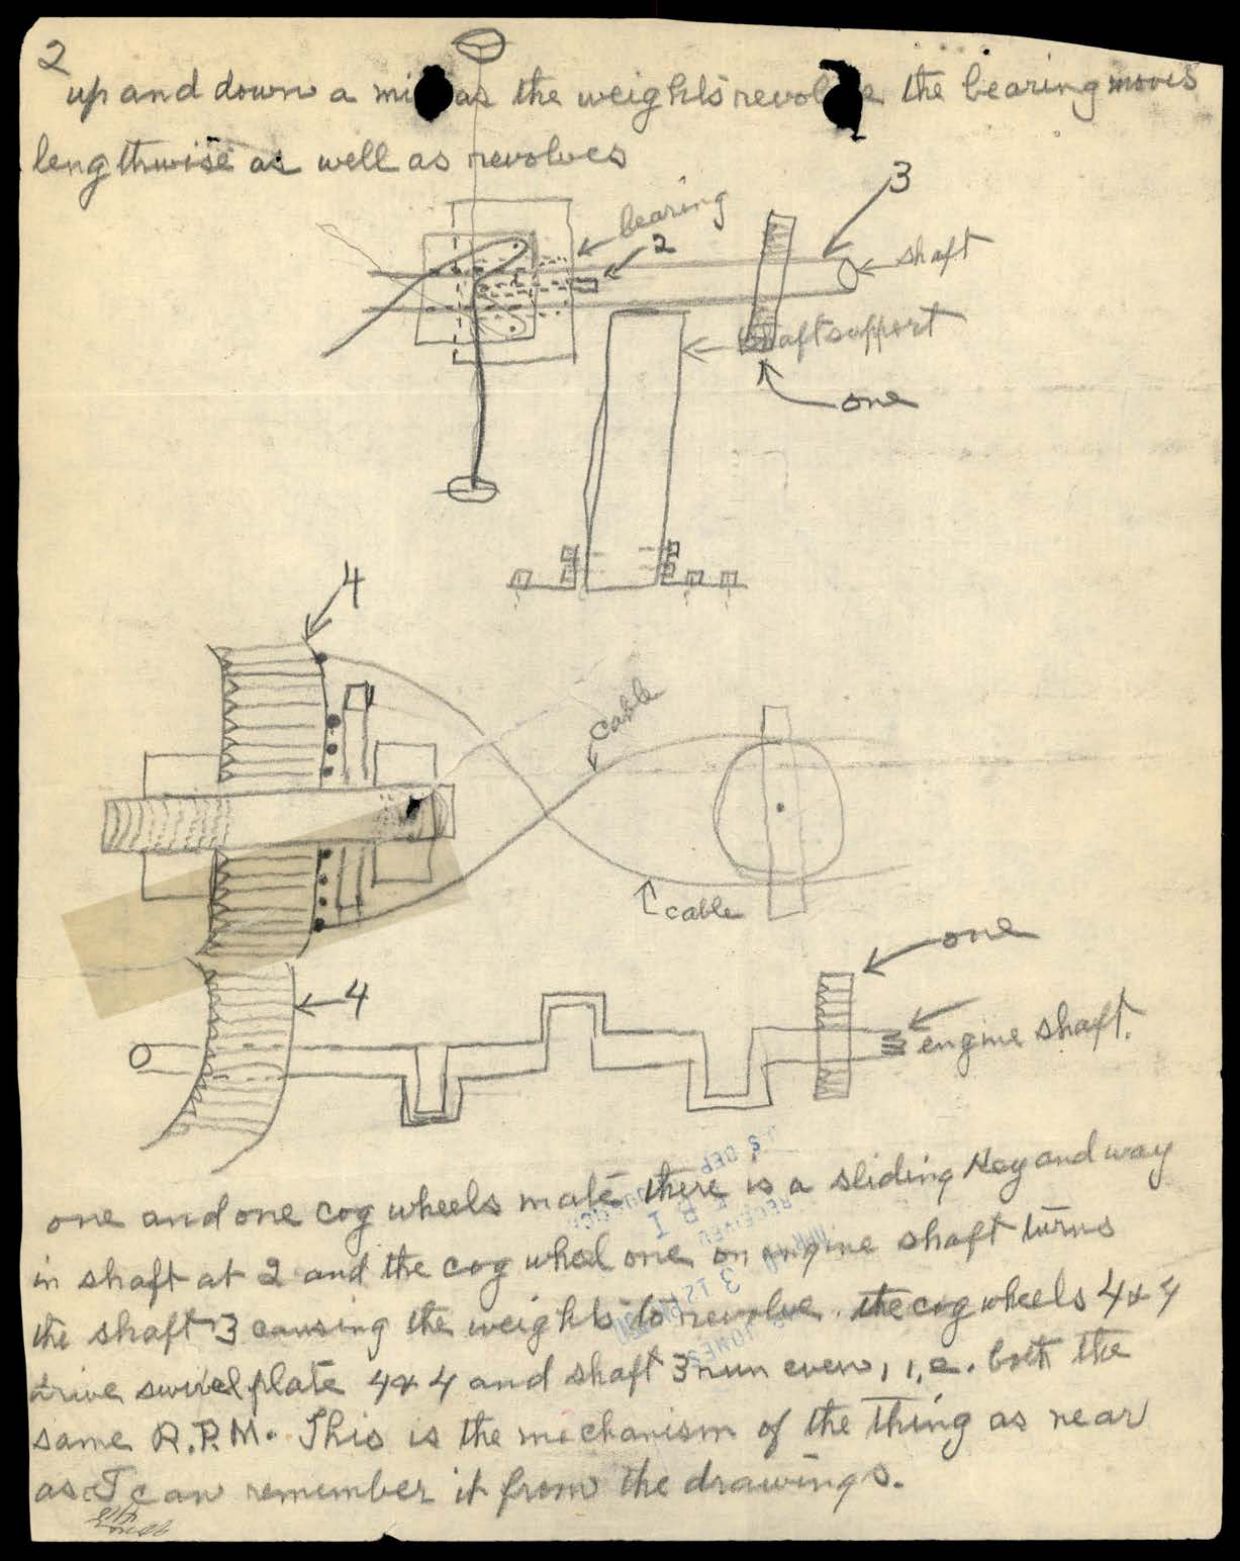 2
up and down a mi as the weights revolve the bearing moves
lengthwise as well as revolves
3
bearing
2
shaft
shaft support
one
4
cable
cable
one
4
engine shaft.
one and one cog wheels mate there is a sliding Key and way
in shaft at 2 and the cog wheel one on engine shaft turns
the shaft 3 causing the weights to revolve. the cog wheels 4 & 4
drive swivel plate 4 & 4 and shaft 3 run even, i, e. both the
same R.P.M. This is the mechanism of the Thing as near
as I can remember it from the drawings.
RECEIVED
F B I